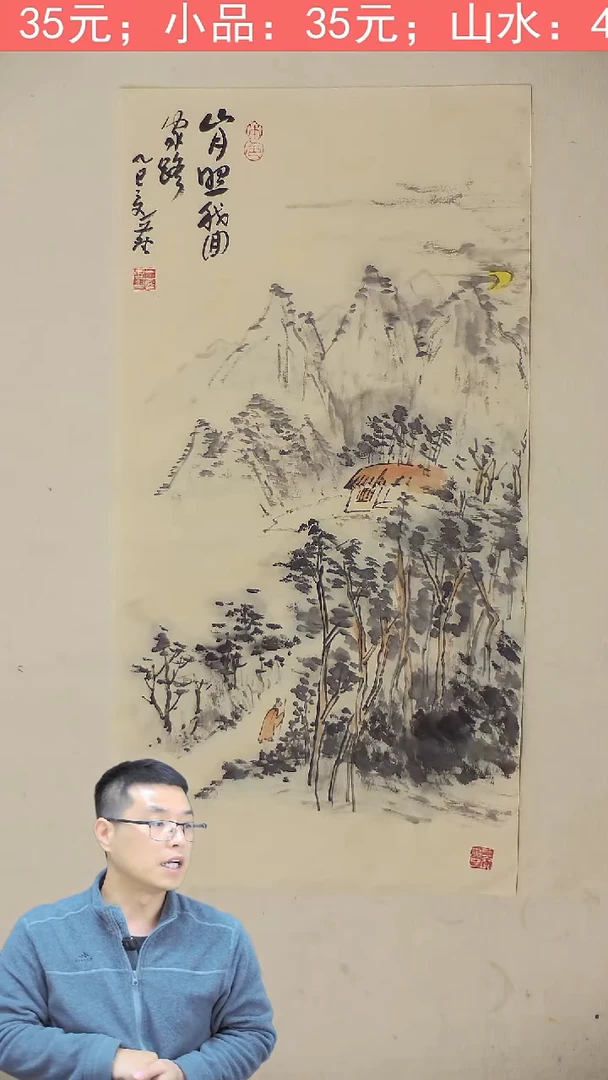 35元；小品：35元；山水：4
山月照我回
家路
乙巳